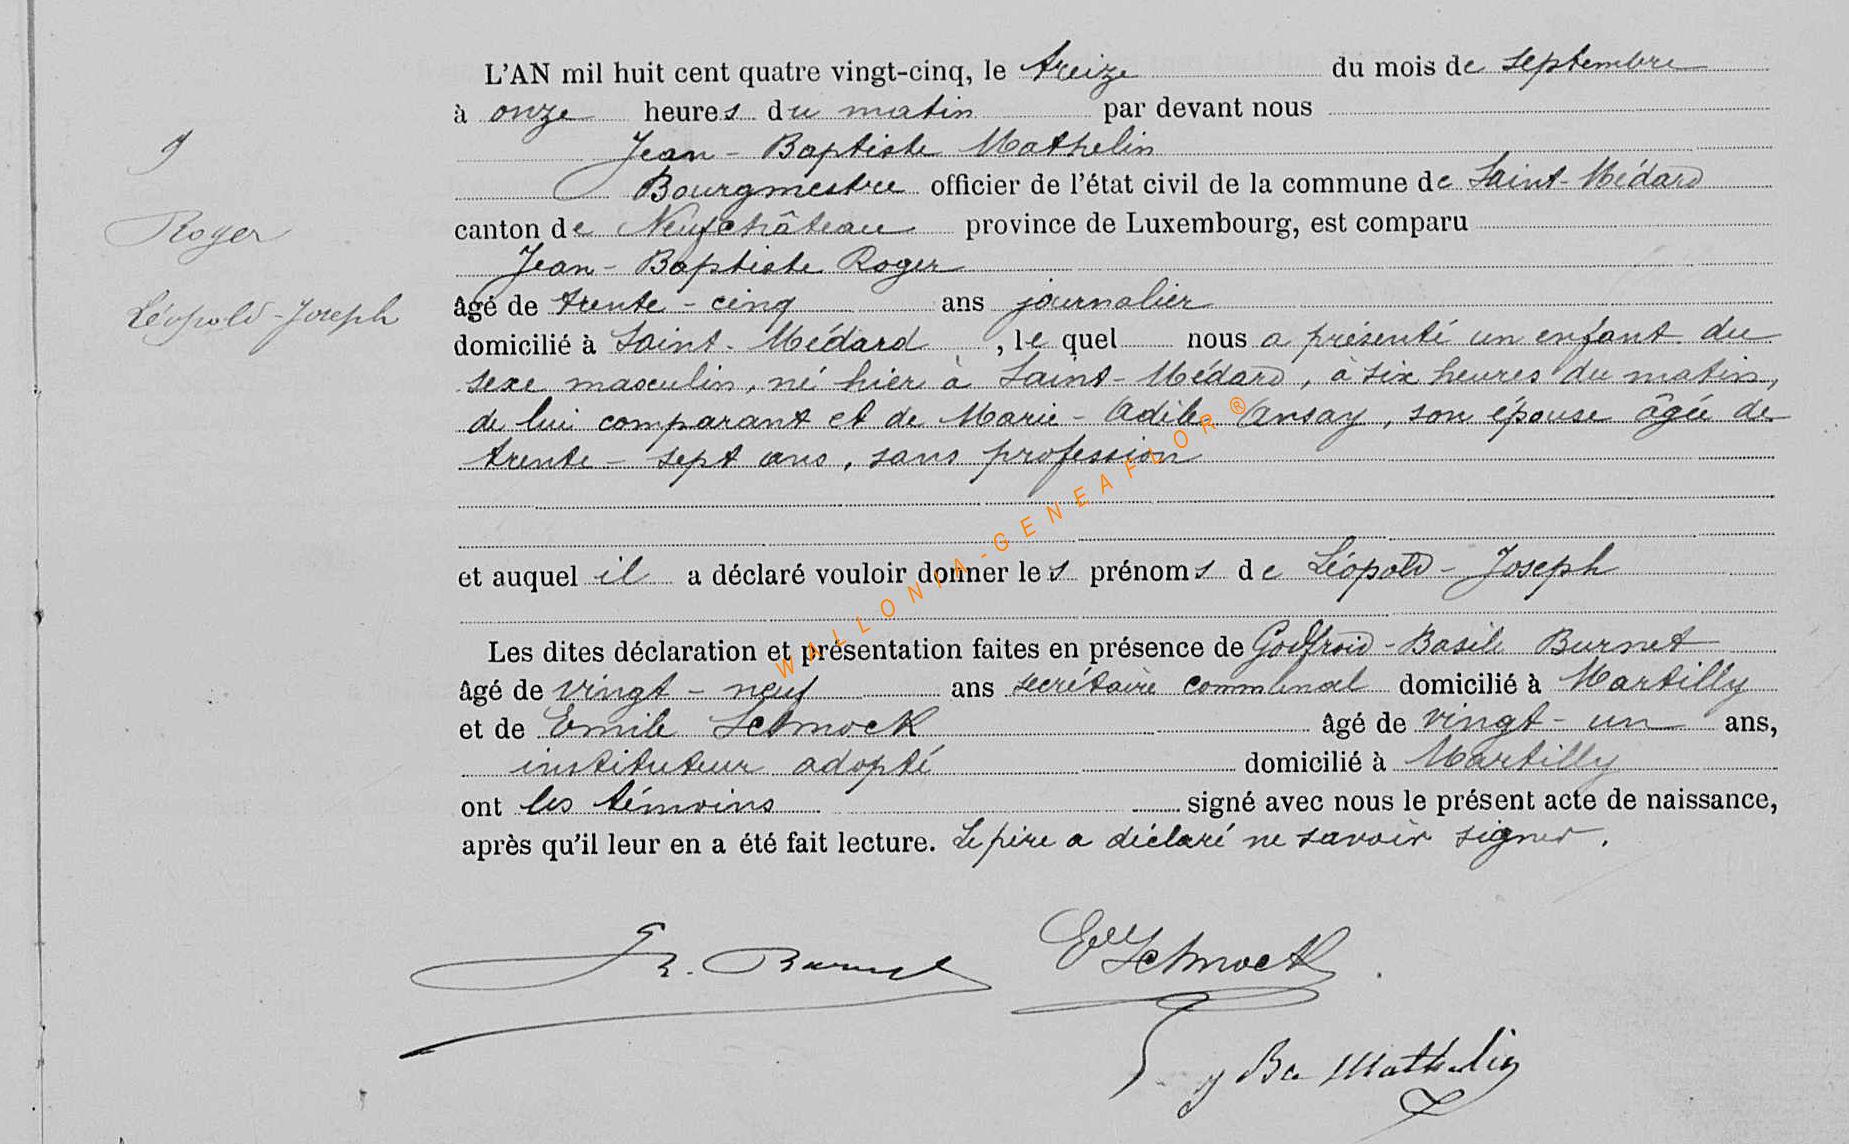 L'AN mil huit cent quatre vingt-cinq, le treize du mois de septembre
à onze heures du matin par devant nous
Jean-Baptiste Mathelin
Bourgmestre officier de l'état civil de la commune de Saint-Médard
canton de Neufchâteau province de Luxembourg, est comparu
Jean-Baptiste Roger
âgé de trente-cinq ans journalier
domicilié à Saint-Médard, le quel nous a présenté un enfant du
sexe masculin, né hier à Saint-Médard, à six heures du matin,
de lui comparant et de Marie-Adile Ansay, son épouse âgée de
trente-sept ans, sans profession
et auquel il a déclaré vouloir donner les prénoms de Léopold-Joseph
Les dites déclaration et présentation faites en présence de Godfroid-Basile Burnet
âgé de vingt-neuf ans secrétaire communal domicilié à Martilly
et de Emile Schmock âgé de vingt-un ans,
instituteur adopté domicilié à Martilly
ont les témoins signé avec nous le présent acte de naissance,
après qu'il leur en a été fait lecture. Le père a déclaré ne savoir signer.
9
Roger
Léopold-Joseph
WALLONIA-GENEAFLOR®
Burnet
Schmock
Mathelin